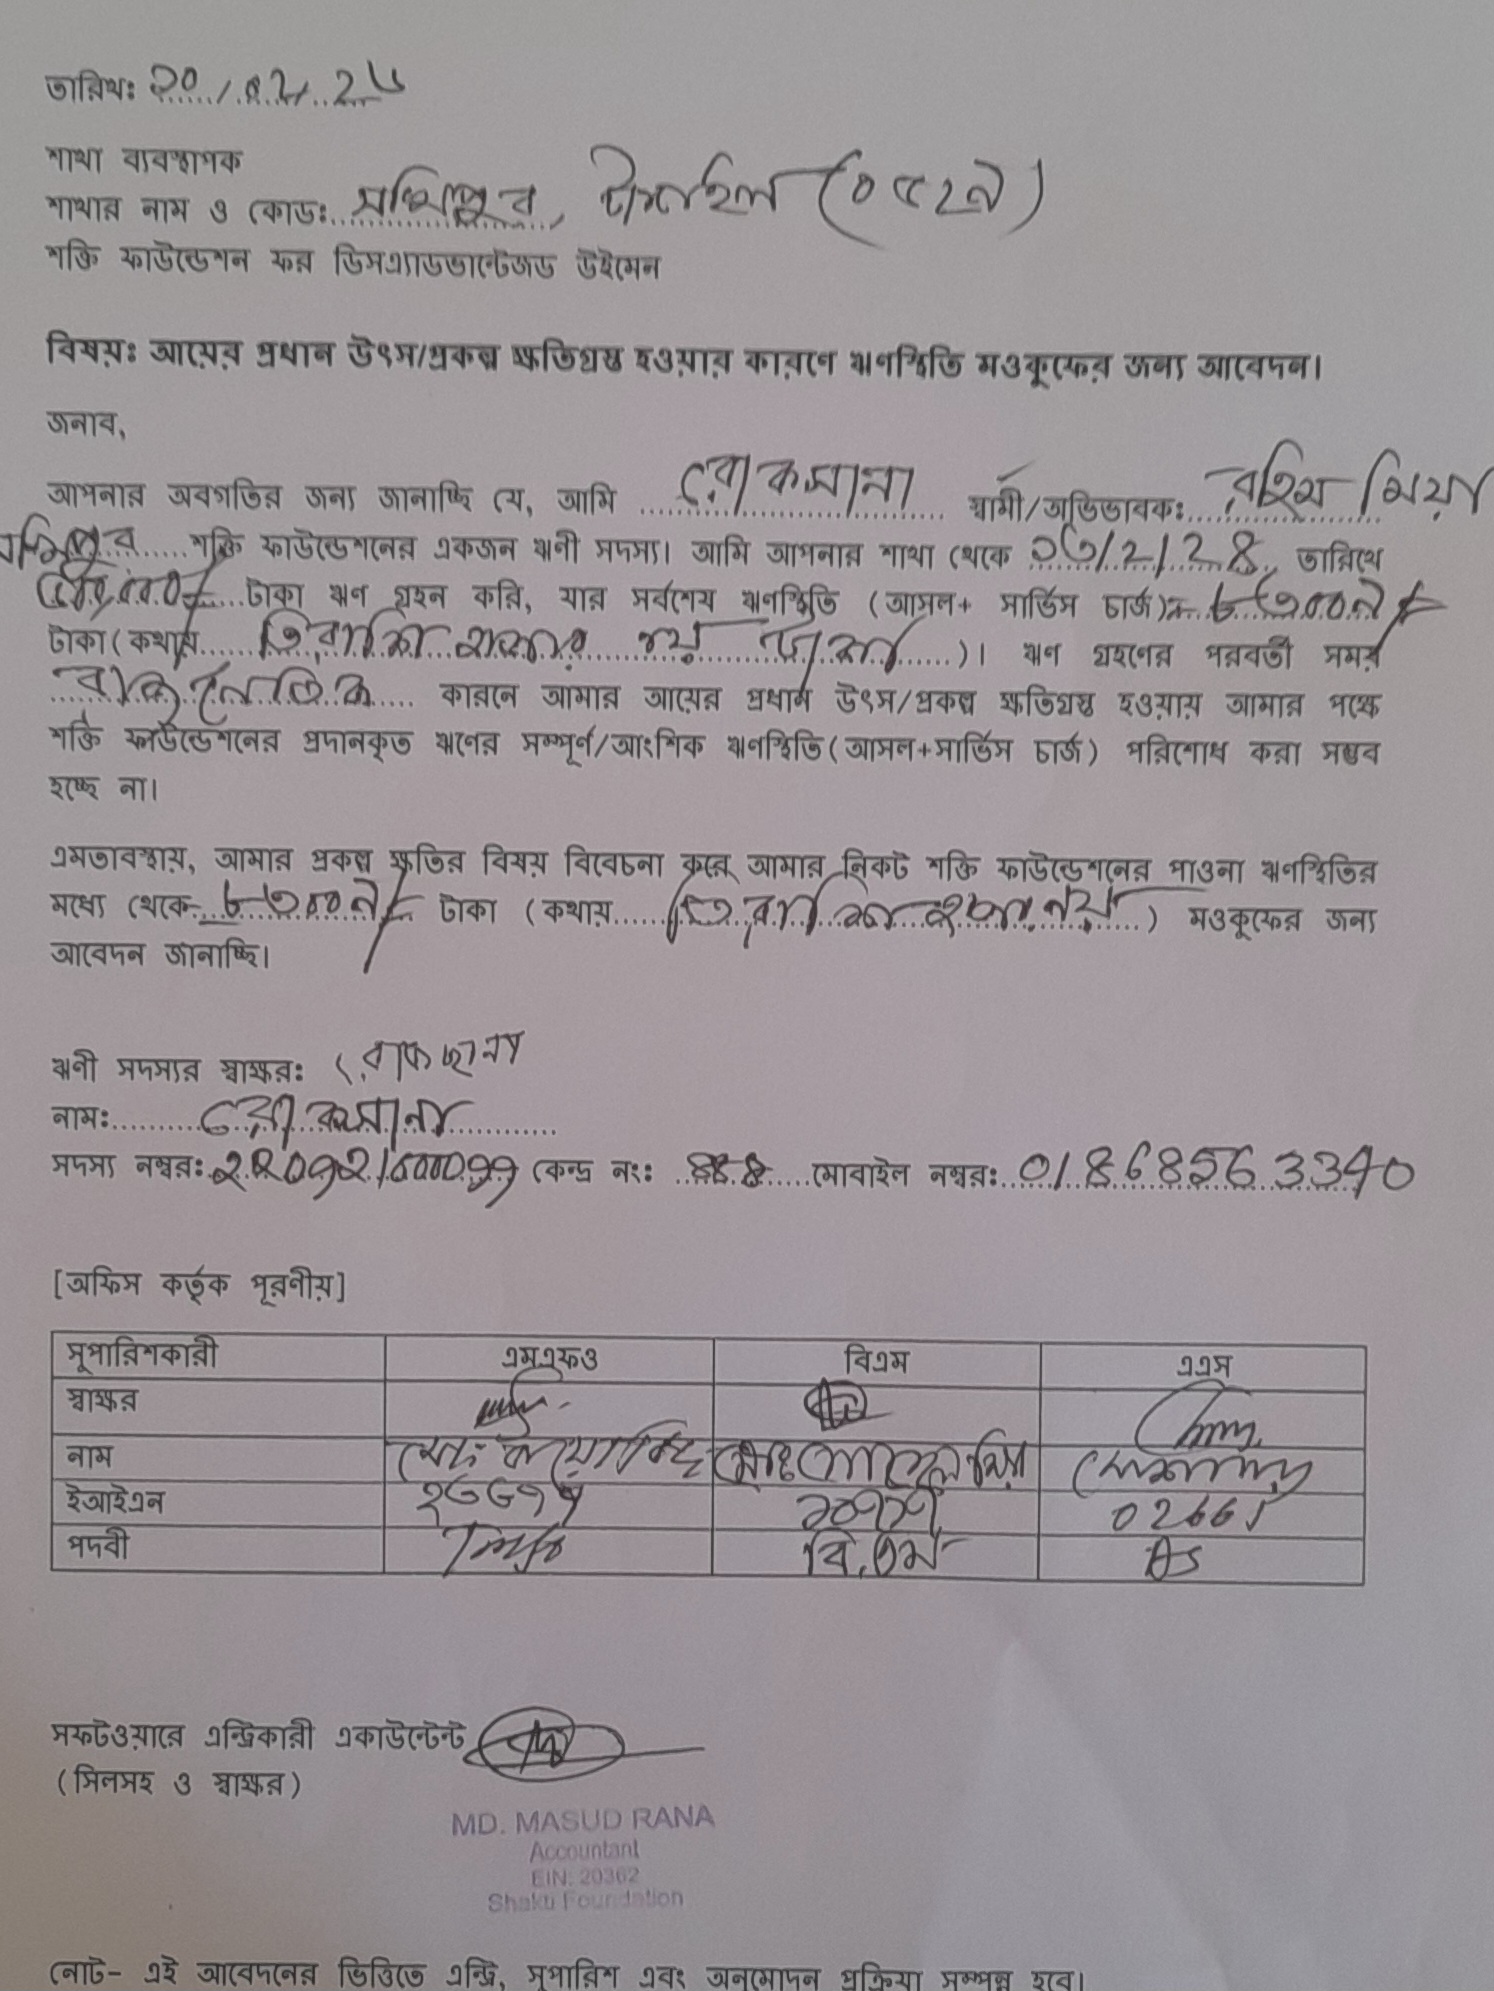 তারিখঃ ২০/০২/২৫
শাখা ব্যবস্থাপক
শাখার নাম ও কোডঃ সখিপুর, টাঙ্গাইল (০৫২৯)
শক্তি ফাউন্ডেশন ফর ডিসএ্যাডভান্টেজড উইমেন
বিষয়ঃ আয়ের প্রধান উৎস/প্রকল্প ক্ষতিগ্রস্ত হওয়ার কারণে ঋণস্থিতি মওকুফের জন্য আবেদন।
জনাব,
আপনার অবগতির জন্য জানাচ্ছি যে, আমি রোকসানা স্বামী/অভিভাবকঃ রহিম মিয়া
সখিপুর শক্তি ফাউন্ডেশনের একজন ঋণী সদস্য। আমি আপনার শাখা থেকে তারিখে
টাকা ঋণ গ্রহন করি, যার সর্বশেষ ঋণস্থিতি (আসল+ সার্ভিস চার্জ) ৮৩০০৯/=
টাকা(কথায় তিরাশি হাজার নয় টাকা)। ঋণ গ্রহণের পরবর্তী সময়
রাজনৈতিক কারনে আমার আয়ের প্রধান উৎস/প্রকল্প ক্ষতিগ্রস্ত হওয়ায় আমার পক্ষে
শক্তি ফাউন্ডেশনের প্রদানকৃত ঋণের সম্পূর্ণ/আংশিক ঋণস্থিতি(আসল+সার্ভিস চার্জ) পরিশোধ করা সম্ভব
হচ্ছে না।
এমতাবস্থায়, আমার প্রকল্প ক্ষতির বিষয় বিবেচনা করে আমার নিকট শক্তি ফাউন্ডেশনের পাওনা ঋণস্থিতির
মধ্যে থেকে ৮৩০০৯/= টাকা (কথায় তিরাশি হাজার নয়) মওকুফের জন্য
আবেদন জানাচ্ছি।
ঋণী সদস্যর স্বাক্ষরঃ রোকছানা
নামঃ রোকসানা
সদস্য নম্বরঃ কেন্দ্র নংঃ মোবাইল নম্বরঃ 01868563340
[অফিস কর্তৃক পূরণীয়]
সুপারিশকারী এমএফও বিএম এএস
স্বাক্ষর
নাম মোঃ
ইআইএন 02661
পদবী বি.এম AS
সফটওয়ারে এন্ট্রিকারী একাউন্টেন্ট
(সিলসহ ও স্বাক্ষর)
MD. MASUD RANA
Accountant
EIN: 20362
Shakti Foundation
নোট- এই আবেদনের ভিত্তিতে এন্ট্রি, সুপারিশ এবং অনুমোদন প্রক্রিয়া সম্পন্ন হবে।